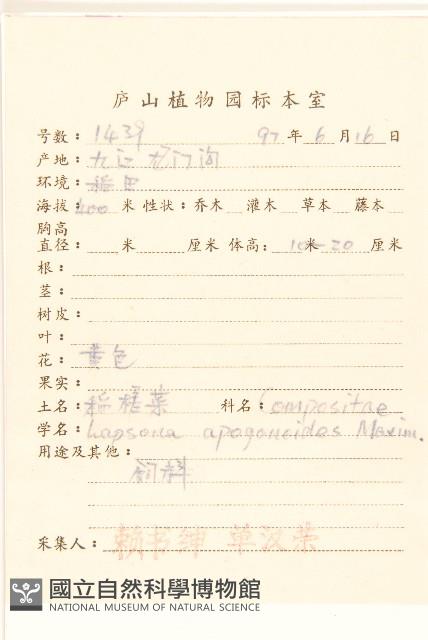 庐山植物园标本室
号数：1439 97年6月16日
产地：九江
环境：稻田
海拔：400米 性状：乔木 灌木 草本 藤本
胸高
直径： 米 厘米 体高：10米-20厘米
根：
茎：
树皮：
叶：
花：黄色
果实：
土名：稻槎菜 科名：Compositae
学名：Lapsana apogonoides Maxim.
用途及其他：
饲料
采集人：赖书绅 单汉荣
國立自然科學博物館
NATIONAL MUSEUM OF NATURAL SCIENCE